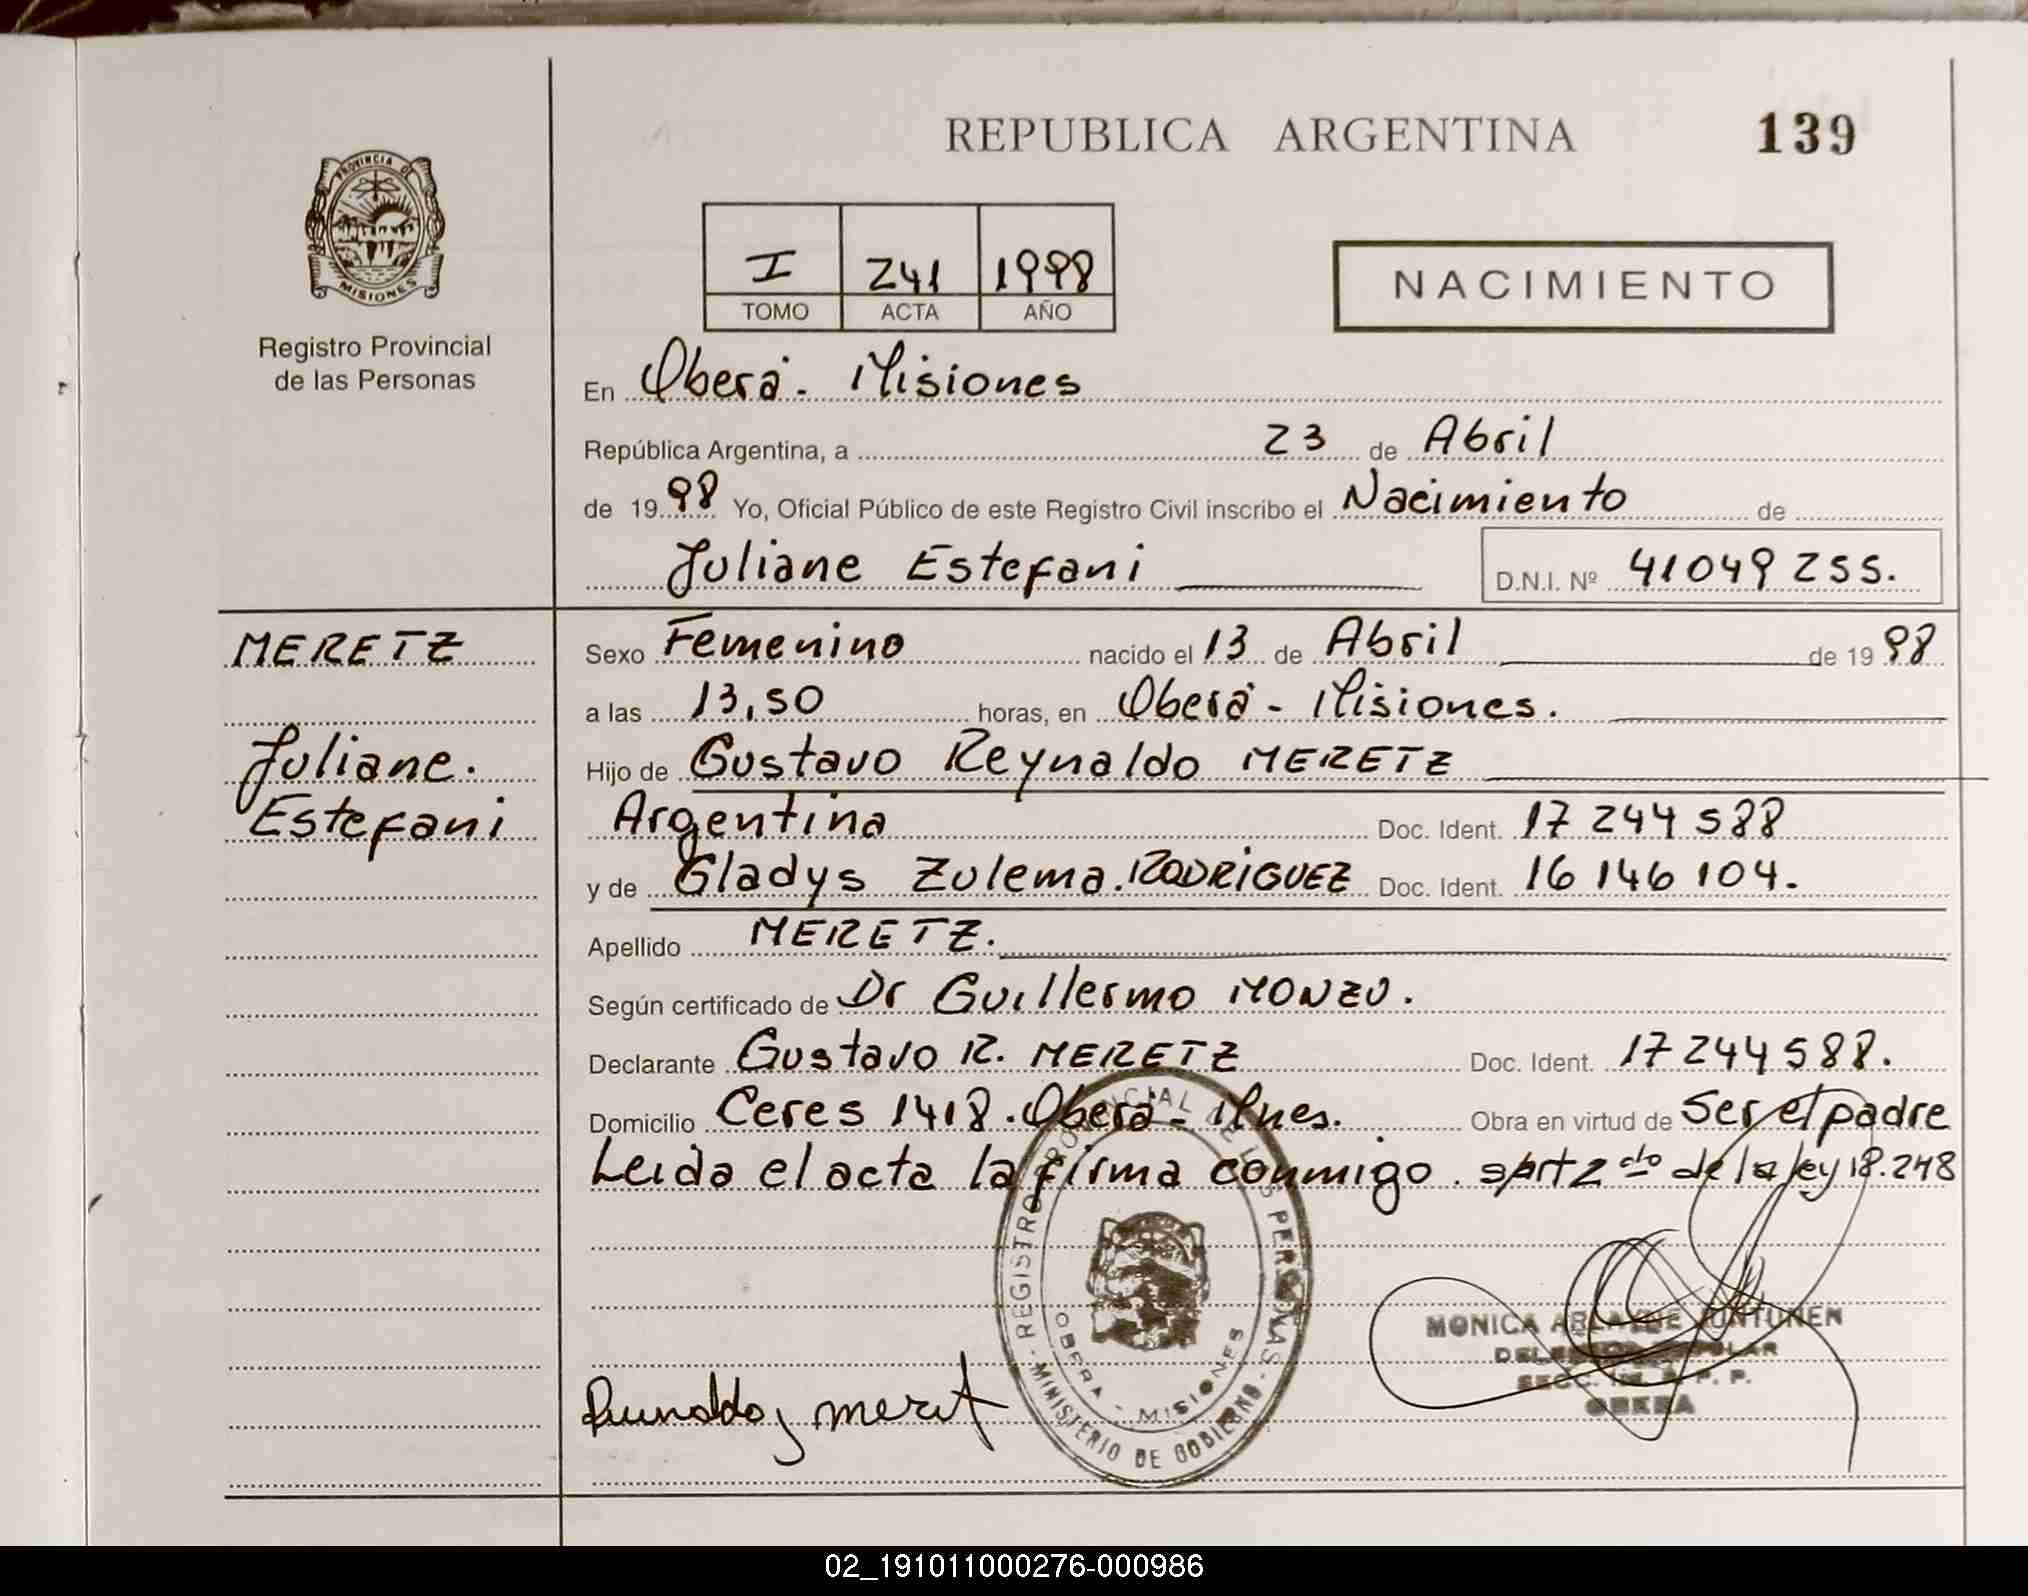 REPUBLICA ARGENTINA 139
PROVINCIA D MISIONES
Registro Provincial
de las Personas
I 241 1998
TOMO ACTA AÑO
NACIMIENTO
En Oberá - Misiones
República Argentina, a 23 de Abril
de 19 98 Yo, Oficial Público de este Registro Civil inscribo el Nacimiento de
Juliane Estefani D.N.I. Nº 41049255.
MERETZ
Juliane.
Estefani
Sexo Femenino nacido el 13 de Abril de 19 98
a las 13,50 horas, en Oberá - Misiones.
Hijo de Gustavo Reynaldo MERETZ
Argentina Doc. Ident. 17 244 588
y de Gladys Zulema. RODRIGUEZ Doc. Ident. 16 146 104.
Apellido MERETZ.
Según certificado de Dr Guillermo MONZO.
Declarante Gustavo R. MERETZ Doc. Ident. 17 244 588.
Domicilio Ceres 1418. Oberá - Mnes. Obra en virtud de Ser el padre
Leida el acta la firma conmigo. s/art 2do de la ley 18.248
REGISTRO PROVINCIAL DE LAS PERSONAS - MINISTERIO DE GOBIERNO -
OBERA - MISIONES
MONICA
OBERA
02_191011000276-000986